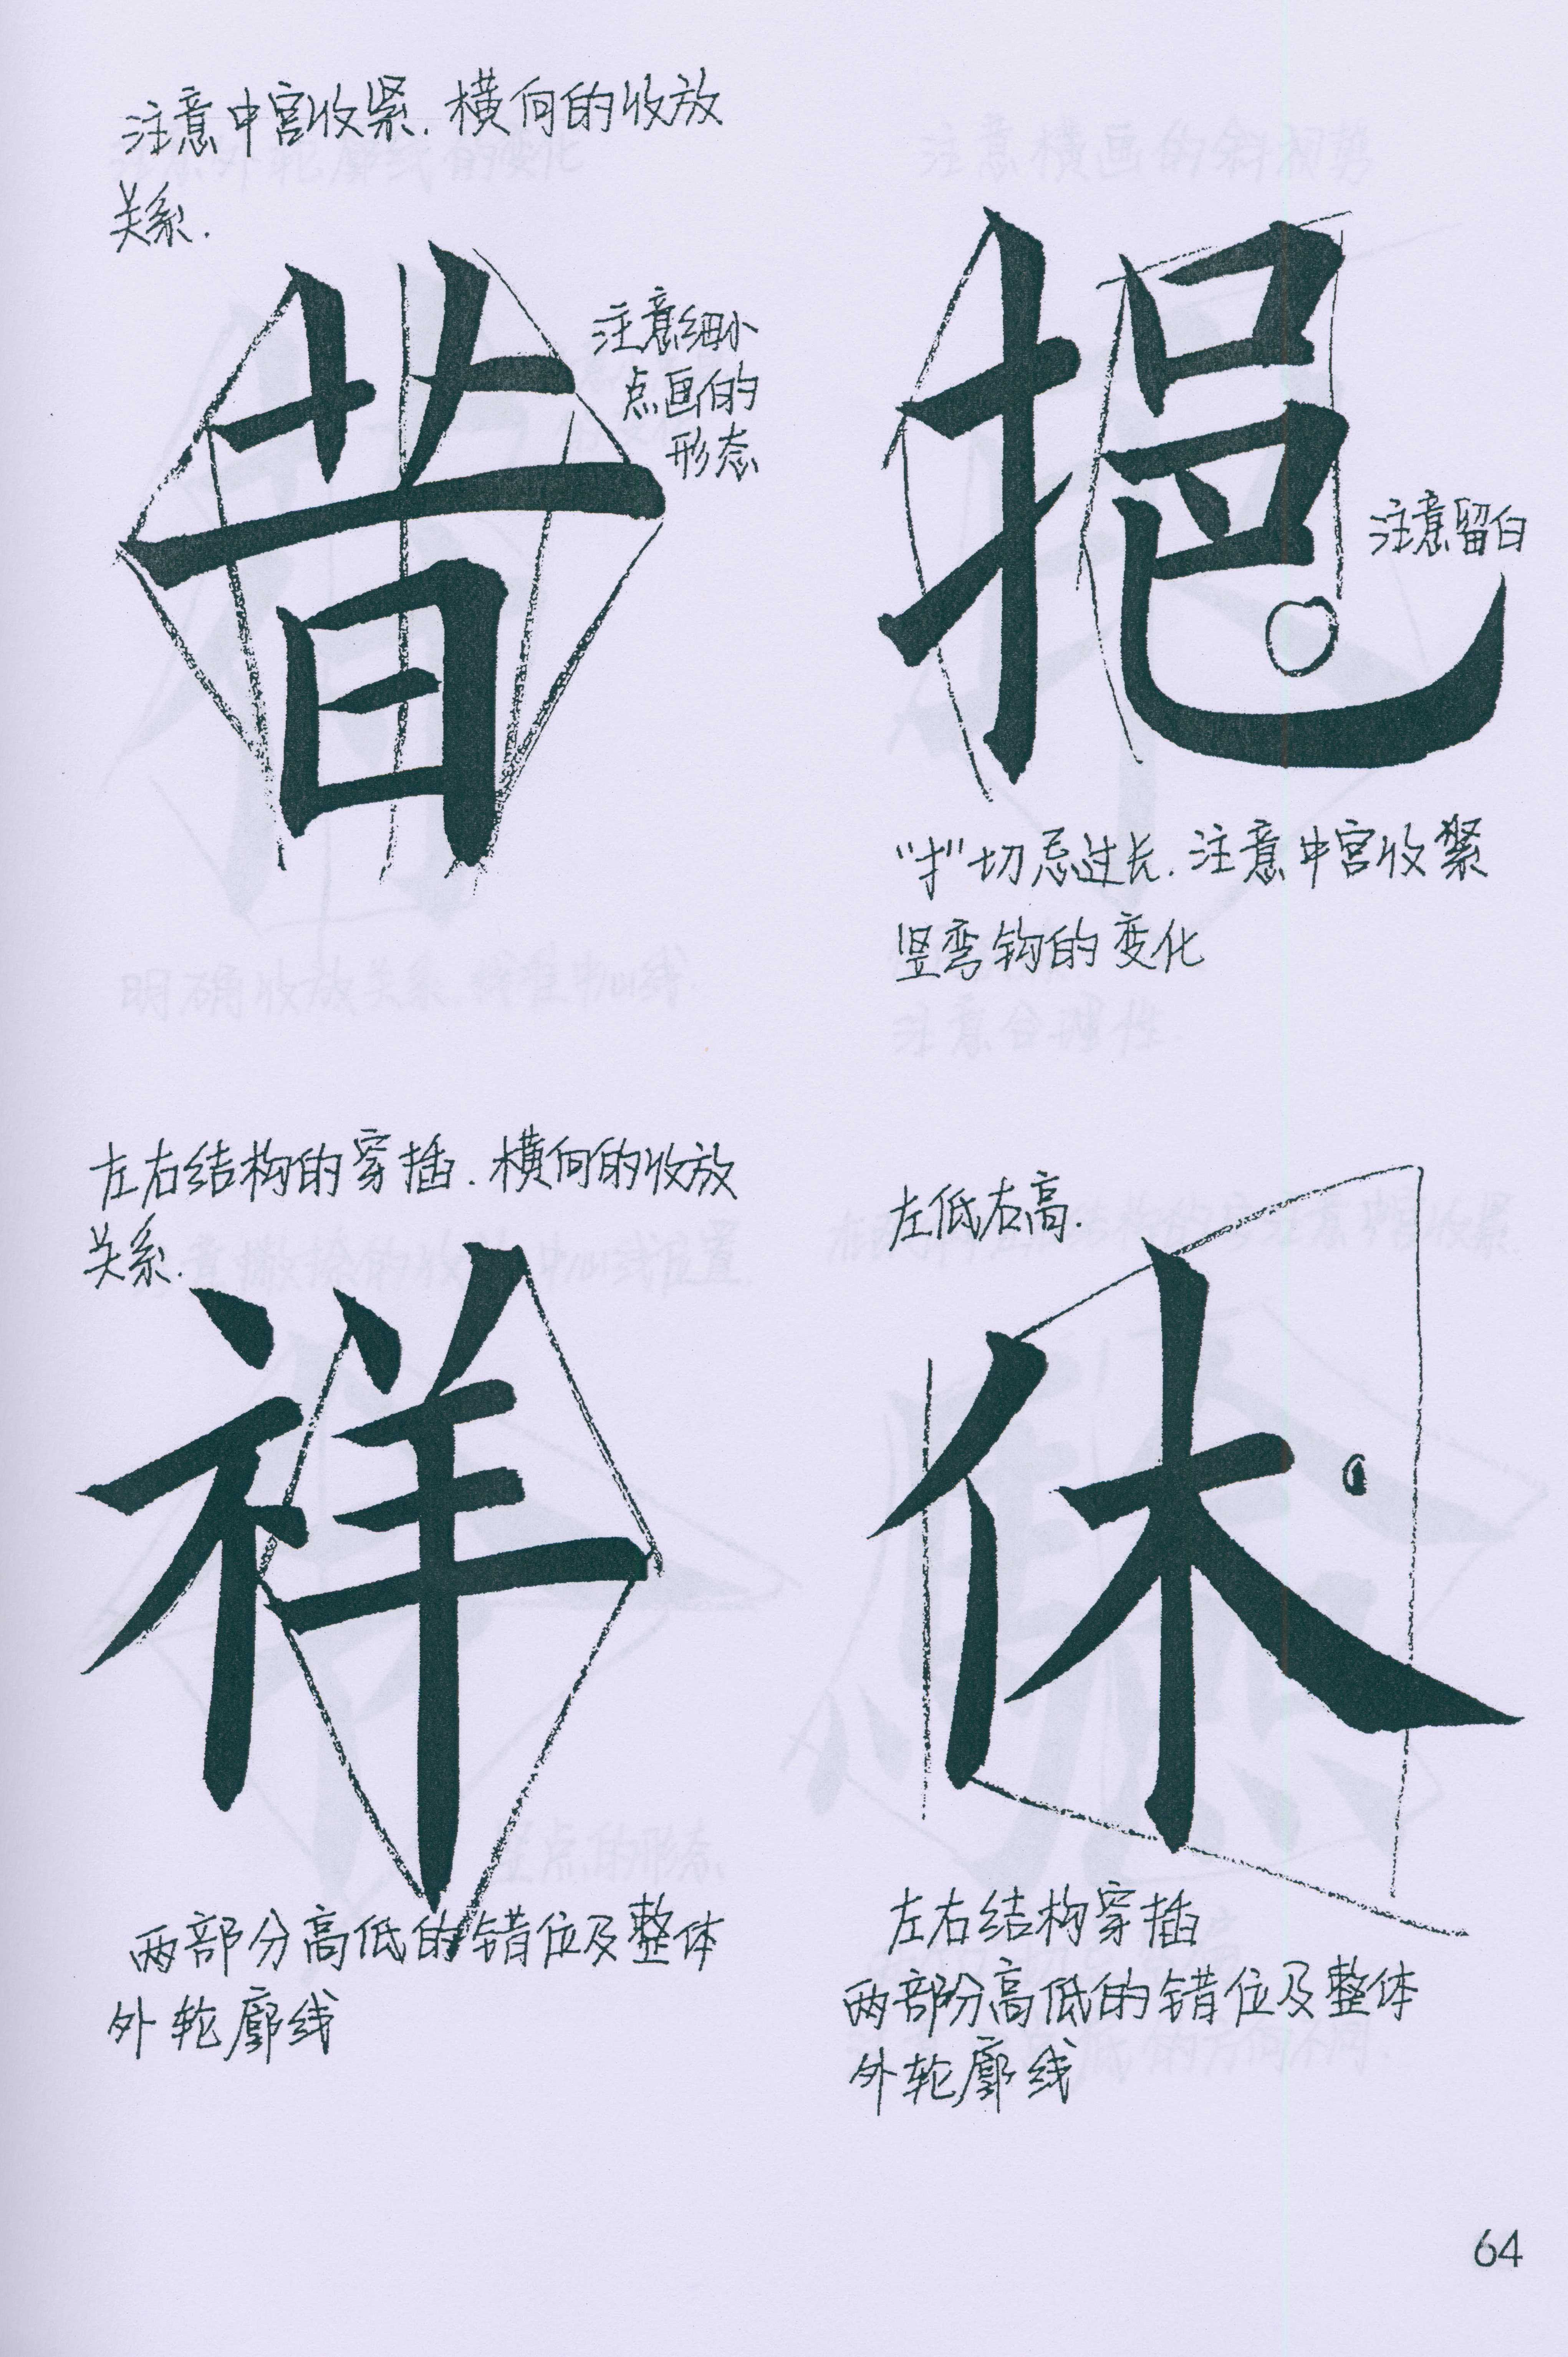 注意中宫收紧.横向的收放
关系.
昔
注意细小
点画的
形态
挹
注意留白
“扌”切忌过长.注意中宫收紧
竖弯钩的变化
左右结构的穿插.横向的收放
关系.
祥
两部分高低的错位及整体
外轮廓线
左低右高.
休
左右结构穿插
两部分高低的错位及整体
外轮廓线
64